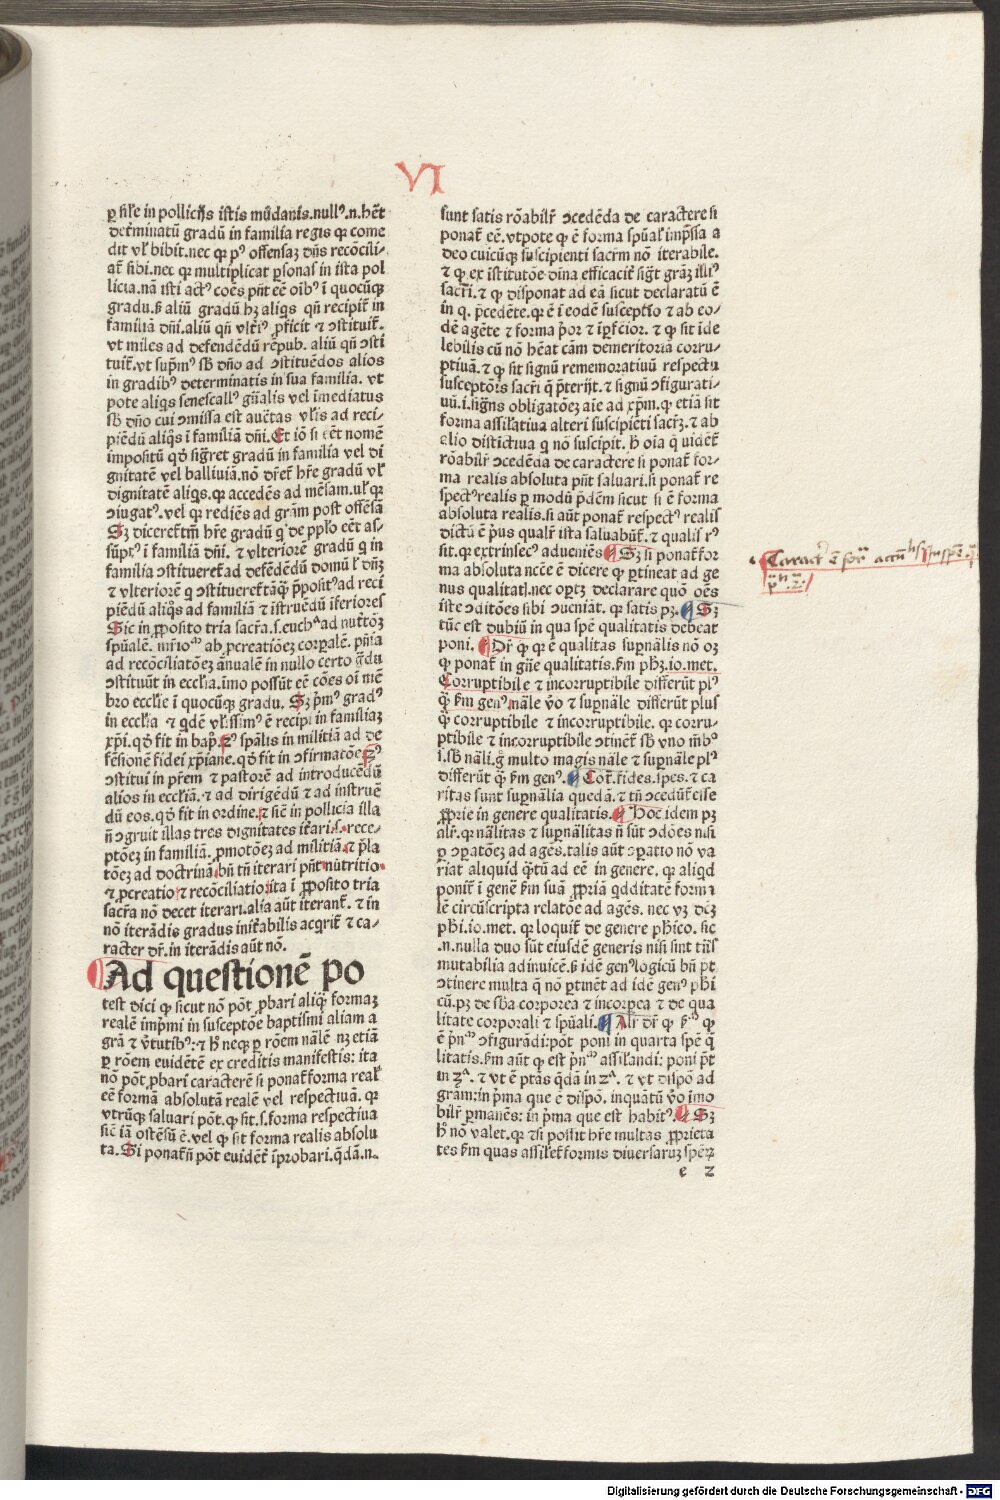 VI
ꝑ sił'e in pollicijs istis mūdanis.null⁹.n.hēt
determinatū gradū in familia regis qꝛ come
dit vł bibit.nec qꝛ p⁹ offensaꝫ dn̄s recōcili/
at̄ sibi.nec qꝛ multiplicat ꝑsonas in ista pol
licia.nā isti act⁹ coēs pn̄t eē oīb⁹ ī quocūqꝫ
gradu.ẞ aliū gradū hꝫ aliqs qn̄ recipit̄ in
familiā dn̄i.aliū qn̄ vlt̄i⁹ ꝓficit ⁊ ↄstituit̄.
vt miles ad defendēdū rēpub. aliū qn̄ ↄsti
tuit̄.vt supm̄⁹ sb̄ dn̄o ad ↄstituēdos alios
in gradib⁹ determinatis in sua familia. vt
pote aliqs senescall⁹ gn̄alis vel īmediatus
sb̄ dn̄o cui ↄmissa est auc̄tas vl̄is ad reci/
piēdū aliqs̄ ī familiā dn̄i.Et iō si eēt nomē
impositū qd̄ siḡret gradū in familia vel di
gnitatē vel balliuiā.nō dr̄et hr̄e gradū vł
dignitatē aliqs.qꝛ accedēs ad mēsam.vł qꝛ
ↄiugat⁹.vel qꝛ rediēs ad gram post offēsā
Sꝫ diceret̄ tm̄ hr̄e gradū q̄ de pplo eēt as/
sūpt⁹ ī familiā dn̄i. ⁊ vlteriorē gradū q̄ in
familia ↄstitueret̄ ad defēdēdū domū ł dn̄ꝫ
⁊ vlteriorē q̄ ↄstitueret̄ tāqꝫ ꝓposit⁹ ad reci
piēdū aliqs̄ ad familiā ⁊ īstruēdū īferiores
Sic in ꝓposito tria sacr̄a.s.euchᵃ ad nutr̄tōꝫ
spūalē. mr̄ioᵐ ab ꝓcreatiōeꝫ corꝑalē. pn̄ia
ad recōciliatōeꝫ ānualē in nullo certo ḡdu
ↄstituūt in ecclīa.īmo possūt eē cōes oī mē
bro ecclīe ī quocūqꝫ gradu. Sꝫ pm̄⁹ grad⁹
in ecclīa ⁊ qdē vl̄issim⁹ ē recipi in familiaꝫ
xp̄i.qd̄ fit in bap̄. z⁹ spālis in militiā ad de
fēsionē fidei xp̄iane.qd̄ fit in ↄfirmatōe z⁹
ↄstitui in pr̄em ⁊ pastorē ad introducēdū
alios in eccl̄iā.⁊ ad dirigēdū ⁊ ad instruē
dū eos.qd̄ fit in ordine.⁊ sic̄ in pollicia illa
n̄ ↄgruit illas tres dignitates iterari.s.rece/
ptōeꝫ in familiā. ꝓmotōeꝫ ad militiā ⁊ pl̄a
tōeꝫ ad doctrinā.bn̄ tn̄ iterari pn̄t nutritio
⁊ ꝓcreatio ⁊ recōciliatio ita ī ꝓposito tria
sacr̄a nō decet iterari.alia aūt iterant̄. ⁊ in
nō iterādis gradus inītabilis acq̄rit̄ ⁊ ca/
racter dr̄.in iterādis aūt nō.
Ad questionē po
test dici qꝙ sicut nō pōt ꝓbari aliqͥ formaꝫ
realē imp̄mi in susceptōe baptismi aliam a
gr̄a ⁊ v̄tutib⁹:⁊ hͨ neqꝫ ꝑ rōem nālē nꝫ etiā
ꝑ rōem euidētē ex creditis manifestis: ita
nō pōt ꝓbari caracterē si ponat̄ forma real̓
eē formā absolutā realē vel respectiuā. qꝛ
vtrūqꝫ saluari pōt.qꝙ sit.s.forma respectiua
sic̄ iā ostēsū ē.vel qꝙ sit forma realis absolu
ta.Si ponat̄ n̄ pōt euidēt̄ īprobari.qdā.n.
sunt satis rōabilr̄ ↄcedēda de caractere si
ponat̄ eē.vtpote qꝙ ē forma spūal̓ imp̄ssa a
deo cuicūqꝫ suscipienti sacr̄m nō iterabile.
⁊ qꝙ ex istitutōe dīna efficacit̄ sig̅t grāꝫ illi⁹
sacr̄i.⁊ qꝙ disponat ad eā sicut declaratū ē
in q. p̄cedēte.qꝙ ē ī eodē susceptio ⁊ ab eo/
dē agēte ⁊ forma p̄or ⁊ īp̄fc̄ior. ⁊ qꝙ sit īde
lebilis cū nō hēat cām demeritoriā corru/
ptiuā.⁊ qꝙ sit signū rememoratiuū respectu
susceptōis sacr̄i q̄ p̄terijt.⁊ signū ↄfigurati/
uū.i.sig̅ns obligatōeꝫ aīe ad xp̄m.qꝙ etiā sit
forma assil̓atiua alteri suscipiēti sacr̄ꝫ.⁊ ab
alio distictiua q̄ nō suscipit. hͨ oīa q̄ uidēt̄
rōabilr̄ ↄcedēda de caractere si ponat̄ for/
ma realis absoluta pn̄t saluari.si ponat̄ re
spect⁹ realis ꝑ modū p̄dēm sicut si ē forma
absoluta realis.si aūt ponat̄ respect⁹ realis
dictū ē p̄us qualr̄ ista saluabūt̄.⁊ qualis r⁹
sit.qꝛ extrinsec⁹ adueniēs Sꝫ si ponat̄ for
ma absoluta ncc̄e ē dicere qꝙ ꝑtineat ad ge
nus qualitat̄.nec oportꝫ declarare quō oēs
iste ↄditōes sibi ↄueniāt. qꝛ satis pꝫ. Sꝫ
tūc est dubiū in qua spē qualitatis debeat
poni. Dr̄ qꝙ qꝛ ē qualitas supnālis nō oꝫ
qꝙ ponat̄ in gn̄e qualitatis.ẞm pħꝫ.io.met.
Corruptibile ⁊ incorruptibile differūt pl⁹
q̄ ẞm gen⁹ nāle v̄o ⁊ supnāle differūt plus
q̄ corruptibile ⁊ incorruptibile. qꝛ corru/
ptibile ⁊ incorruptibile ↄtinēt̄ sb̄ vno mēb⁹
i.sb̄ nāli.g̊ multo magis nāle ⁊ supnāle pl⁹
differūt q̄ ẞm gen⁹. Cōt̄.fides.spes.⁊ ca
ritas sunt supnālia quedā.⁊ tn̄ ↄcedūt̄ eīse
ꝓprie in genere qualitatis. Hoc idem pꝫ
alr̄.qꝛ nālitas ⁊ supnālitas n̄ sūt ↄdōes nisi
ꝑ ↄꝑatōeꝫ ad agēs.talis aūt ↄꝑatio nō va
riat aliquid qͣtū ad eē in genere. qꝛ aliqd
ponit̄ ī genē ẞm suā ꝓpriā qdditatē forma
lē circūscripta relatōe ad agēs. nec vꝫ dc̄ꝫ
pħi.io.met. qꝛ loquit̄ de genere pħico. sic
.n.nulla duo sūt eiusdē generis nisi sint trīs
mutabilia adinuicē.ẞ idē gen⁹ logicū bn̄ pt̄
ↄtinere multa q̄ nō ꝑtinēt ad idē gen⁹ pħi
cū.pꝫ de sb̄a corporea ⁊ incorꝑea ⁊ de qua
litate corporali ⁊ spūali. Alr̄ dr̄ qꝙ ẞᵐ qꝙ
ē pn̄ᵐ ↄfigurādi:pōt poni in quarta spē q̄
litatis.ẞm aūt qꝙ est pn̄ᵐ assil̓andi: poni pt̄
in zᵃ. ⁊ vt ē ptās q̄dā in zᵃ. ⁊ vt dispō ad
gram:in p̄ma que ē dispō. inquātū v̄o imo
bilr̄ ꝑmanēs: in p̄ma que est habit⁹. Sꝫ
hͨ nō valet.qꝛ ⁊si possit hr̄e multas ꝓprieta
tes ẞm quas assil̓et̄ formis diuersaruꝫ spērꝫ
e 2
Digitalisierung gefördert durch die Deutsche Forschungsgemeinschaft - DFG